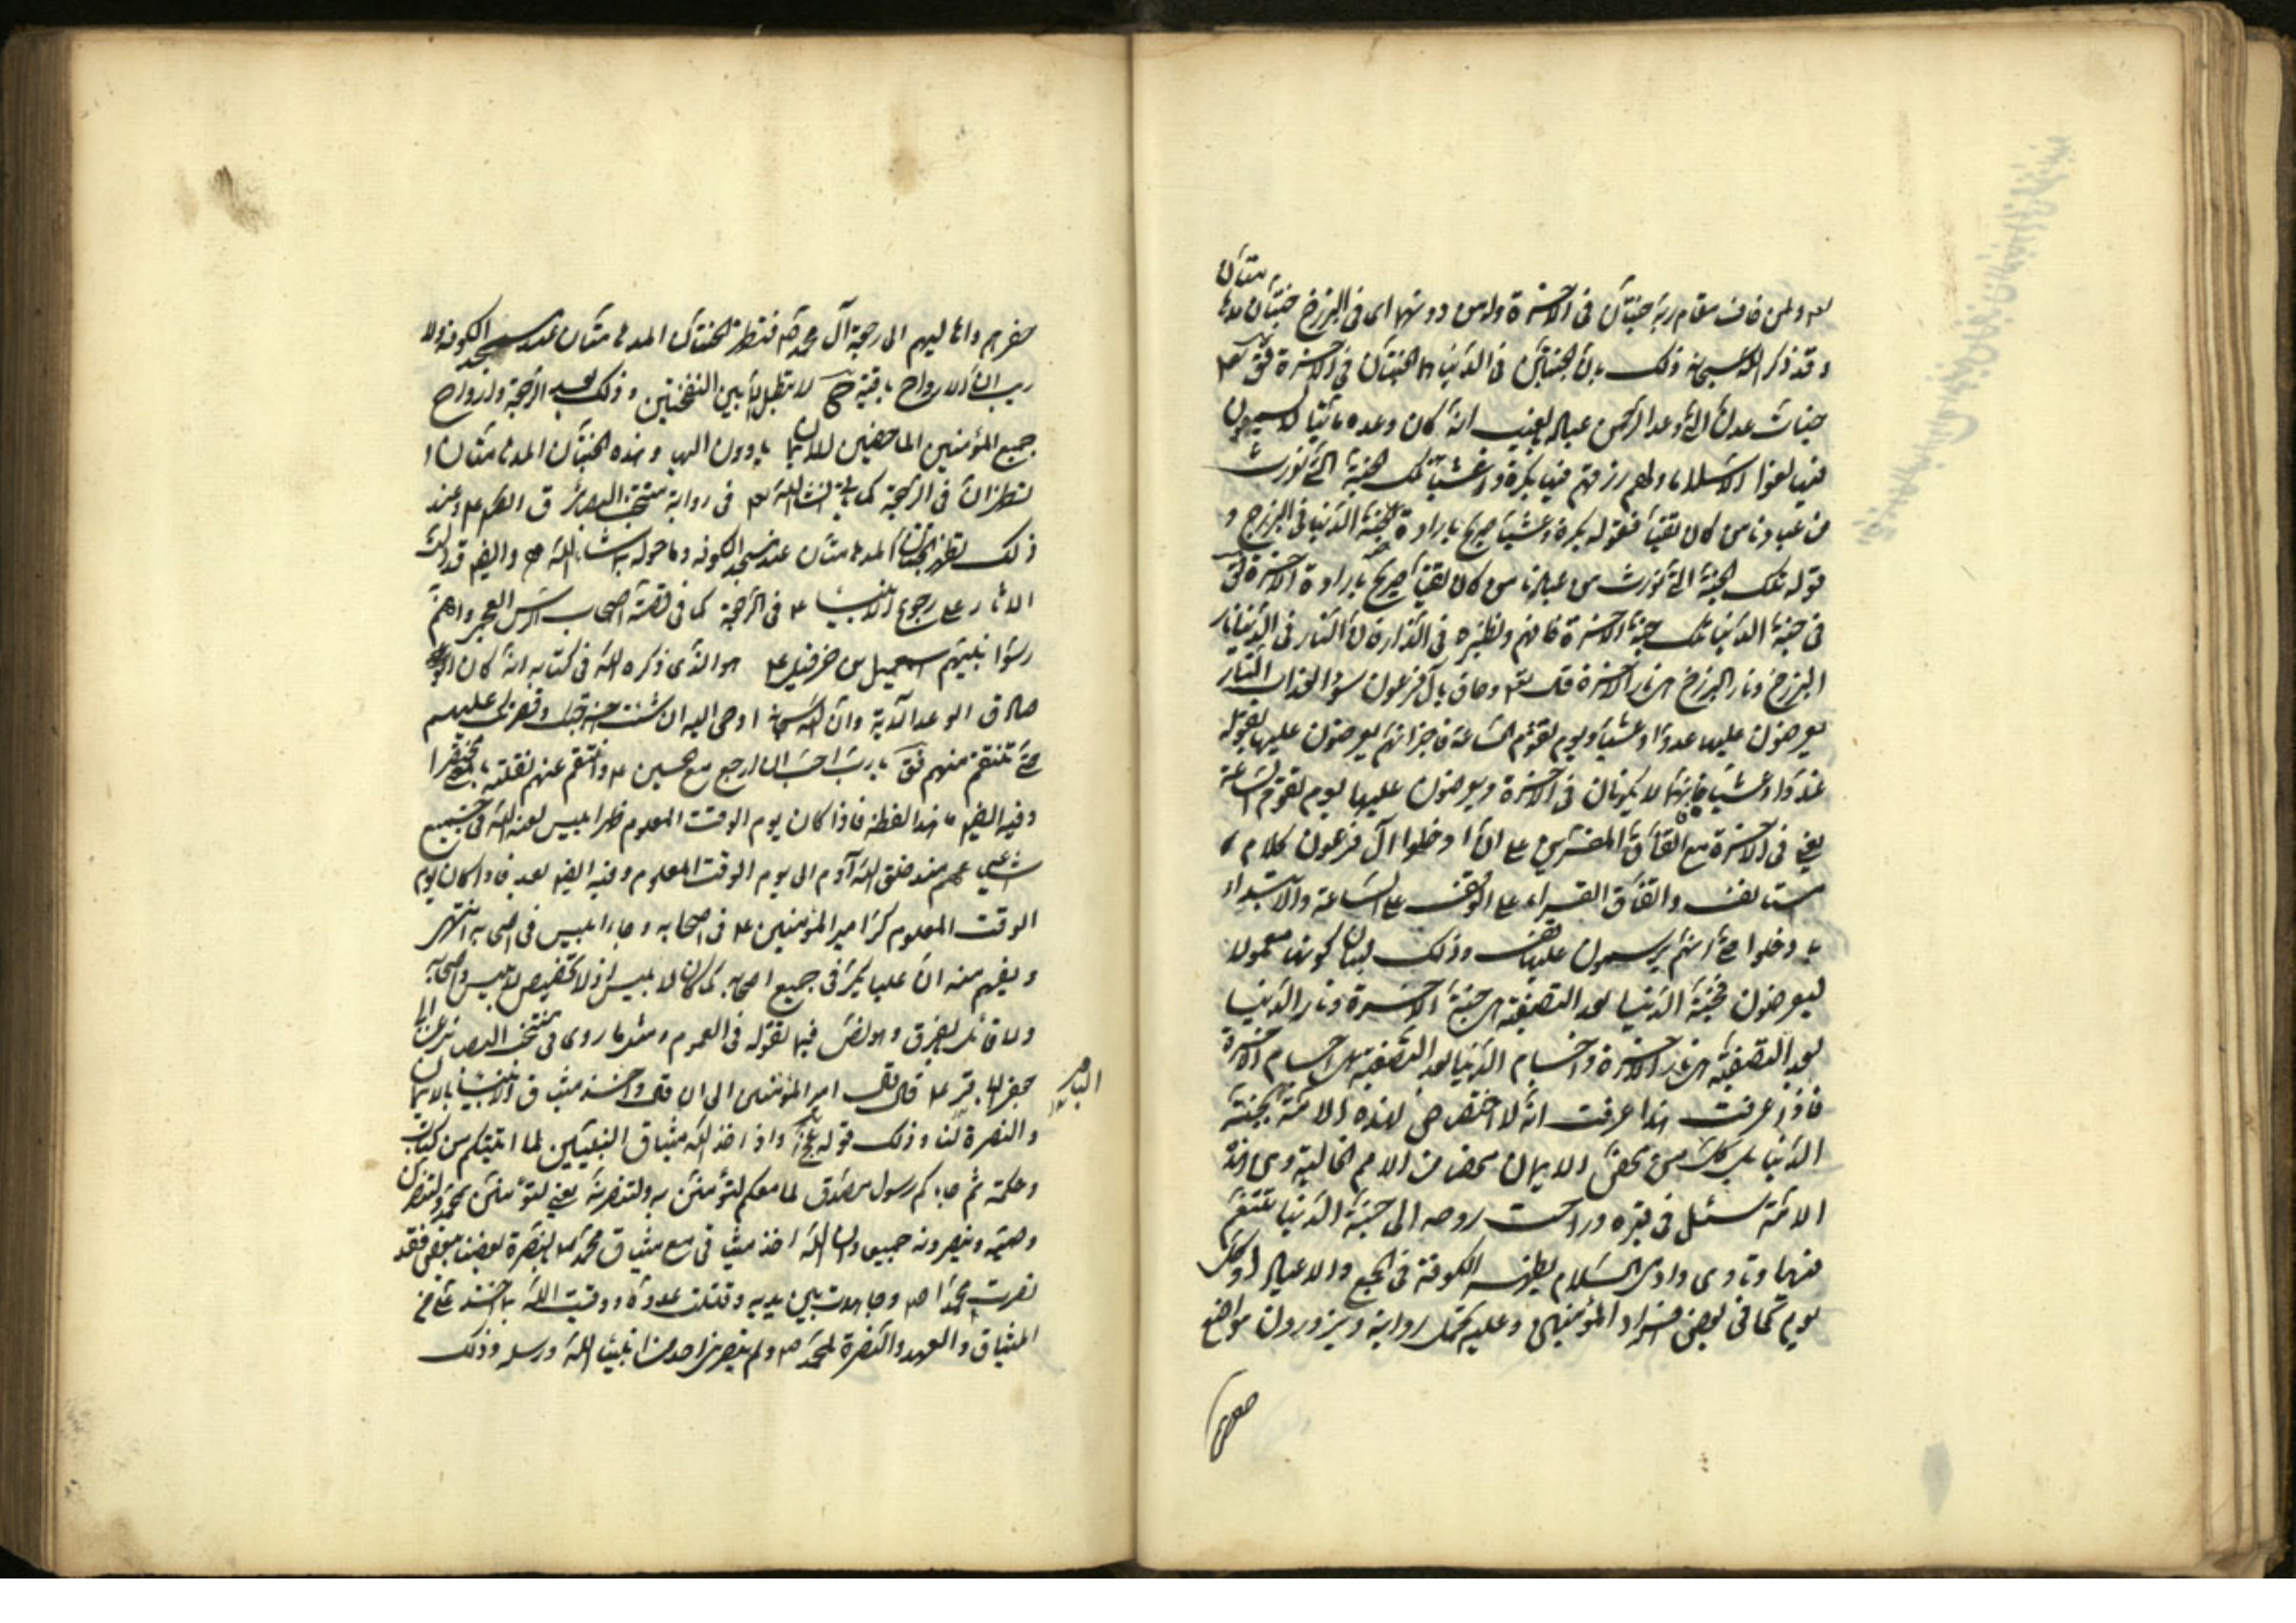 مدهامتان
له ولمن خاف مقام ربه جنتان فى الاخرة ومن دونهما اى فى البرزخ جنتان
وقد ذكر الله سبحانه ذلك بان الجنتين فى الدنيا هما الجنتان فى الاخرة فق تعالى
جنات عدن التى وعد الرحمن عباده بالغيب انه كان وعده مأتيا لا يسمعون
فيها لغوا الا سلاما ولهم رزقهم فيها بكرة وعشيا تلك الجنة التى نورث
من عبادنا من كان تقيا فقوله بكرة وعشيا صريح بارادة جنة الدنيا فى البرزخ و
قوله تلك الجنة التى نورث من عبادنا من كان تقيا صريح بارادة الاخرة
فى جنة الدنيا تلك جنة الاخرة فافهم ونظيره فى النار لان النار فى الدنيا نار
البرزخ ونار البرزخ هى نار الاخرة قال تعالى وحاق بآل فرعون سوء العذاب النار
يعرضون عليها غدوا وعشيا ويوم تقوم الساعة فاخبر انهم يعرضون عليها بقوله
غدوا وعشيا فانهما لا يكونان فى الاخرة ويعرضون عليها يوم تقوم الساعة
يعنى فى الاخرة مع اتفاق المفسرين على ان ادخلوا آل فرعون كلام
مستانف واتفاق القراء على الوقف على الساعة والابتداء
بادخلوا حتى انهم يرسمون عليها قف وذلك لبيان كونها معمولا
ليعرضون فجنة الدنيا بعد التصفية هى جنة الاخرة ونار الدنيا
بعد التصفية هى نار الاخرة واجسام الدنيا بعد التصفية هى اجسام الاخرة
فاذا عرفت هذا عرفت انه لا اختصاص لهذه الامة بجنة
الدنيا بل كل من محض الايمان محضا من الامم الخالية ومن هذه
الامة سئل فى قبره وراحت روحه الى جنة الدنيا تتنعم
فيها وتأوى وادى السلام بظهر الكوفة فى الجمع والاعياد او كل
يوم كما فى بعض افراد المؤمنين وعليه تحمل رواية ويزورون مواضع
حفرهم
حفرهم واهاليهم الى رجعة آل محمد ص فتظهر الجنتان المدهامتان عند مسجد الكوفة ولا
ريب ان الارواح باقية ح لا تبطل الا بين النفختين وذلك بعد الرجعة وارواح
جميع المؤمنين الماحضين للايمان يأوون اليها وهذه الجنتان المدهامتان
تظهران فى الرجعة كما يأتى انشاء الله تعالى فى رواية منتخب البصائر ق ع وعند
ذلك تظهر الجنتان المدهامتان عند مسجد الكوفة وما حوله بما شاء الله وايضا قد دلت
الاثار على رجوع الانبياء ع فى الرجعة كما فى قصة اصحاب الرس العجم وانهم
رسوا نبيهم اسمعيل بن حزقيل ع هو الذى ذكره الله فى كتابه انه كان
صادق الوعد الاية وان الله سبحانه اوحى اليه ان شئت
حتى تنتقم منهم فق يا رب احب ان ارجع مع الحسين ع وانتقم عنهم نقلته بالمعنى مختصرا
وفيه ايضا ما هذا لفظه فاذا كان يوم الوقت المعلوم ظهر ابليس لعنه الله فى جميع
اشياعه منذ خلق الله آدم الى يوم الوقت المعلوم وفيه ايضا بعد فاذا كان يوم
الوقت المعلوم كر امير المؤمنين ع فى اصحابه وجاء ابليس فى اصحابه انتهى
ويفهم منه ان عليا يكر فى جميع اصحابه كما كان لابليس اذ لا تخصيص لابليس واصحابه
ولا قائل بالفرق وهو نص فيما نقوله فى العموم ومثله ما روى فى منتخب البصائر عن ابى
جعفر الباقر ع قال قال امير المؤمنين الى ان قال واخذ ميثاق الانبياء بالايمان
والنصرة لنا وذلك قوله عز وجل واذ اخذ الله ميثاق النبيين لما اتيتكم من كتاب
وحكمة ثم جاءكم رسول مصدق لما معكم لتؤمنن به ولتنصرنه يعنى لتؤمنن بمحمد ولتنصرن
وصيه وينصرونه جميعا وان الله اخذ ميثاقى مع ميثاق محمد ص بالنصرة بعضنا لبعض فقد
نصرت محمدا ص وجاهدت بين يديه وقتلت عدوه ووفيت الله بما اخذ على من
الميثاق والعهد والنصرة لمحمد ص ولم ينصرنى احد من انبياء الله ورسله وذلك
الباقر